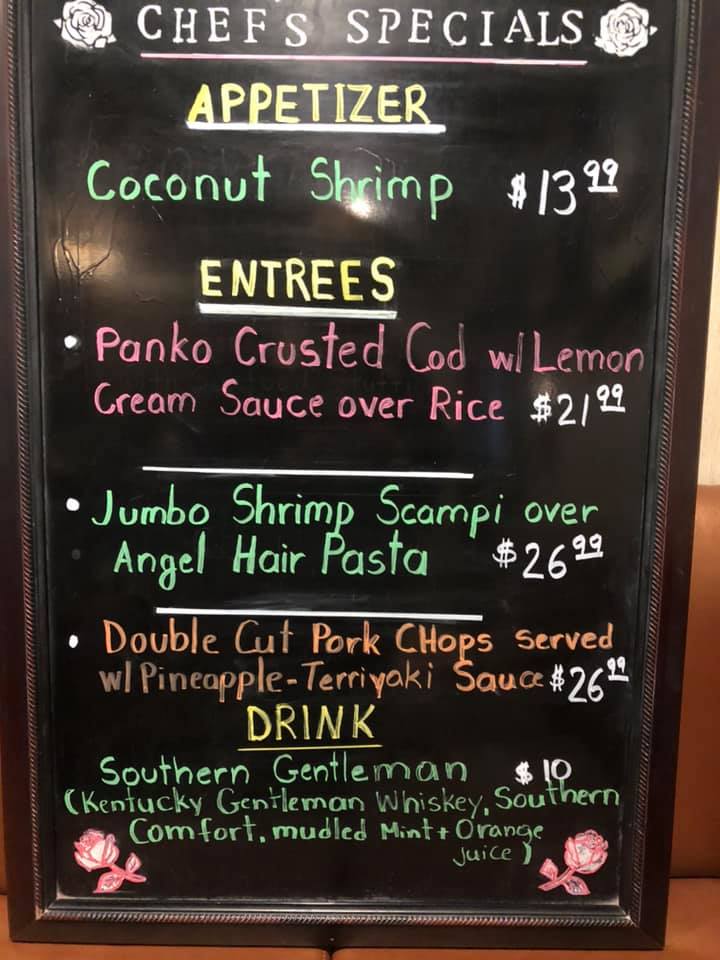 CHEF'S SPECIALS
APPETIZER
Coconut Shrimp $13.99
ENTREES
• Panko Crusted Cod w/ Lemon
Cream Sauce over Rice $21.99
• Jumbo Shrimp Scampi over
Angel Hair Pasta $26.99
• Double Cut Pork CHops served
w/ Pineapple-Terriyaki Sauce $26.99
DRINK
Southern Gentleman $10
(Kentucky Gentleman Whiskey, Southern
Comfort, mudled Mint + Orange
juice)